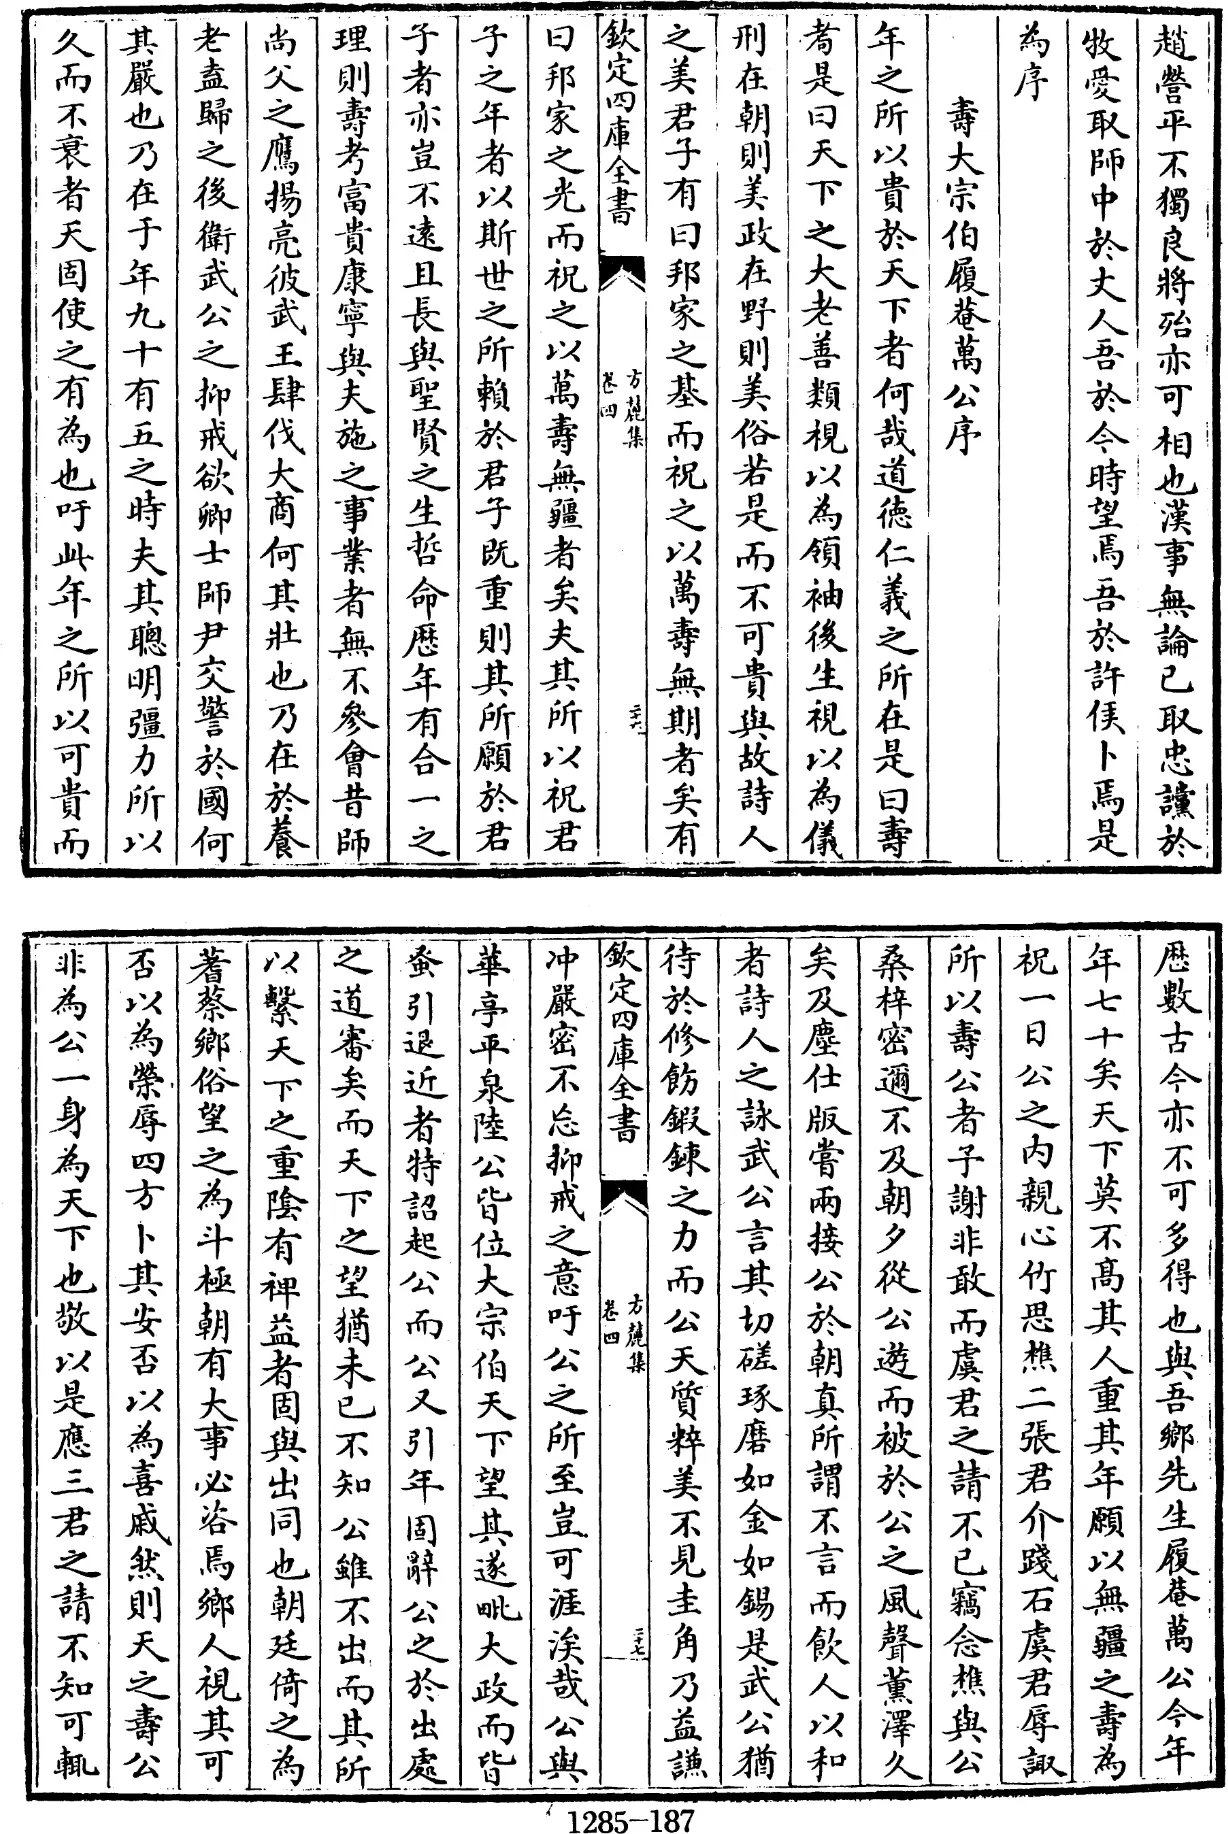 趙營平不獨良將殆亦可相也漢事無論已取忠讜於
牧愛取師中於丈人吾於今時望焉吾於許侯卜焉是
為序
壽大宗伯履菴萬公序
年之所以貴於天下者何哉道德仁義之所在是曰壽
耈是曰天下之大老善類視以為領袖後生視以為儀
刑在朝則美政在野則美俗若是而不可貴與故詩人
之美君子有曰邦家之基而祝之以萬壽無期者矣有
欽定四庫全書
方麓集
卷四
二十六
曰邦家之光而祝之以萬壽無疆者矣夫其所以祝君
子之年者以斯世之所賴於君子既重則其所願於君
子者亦豈不遠且長與聖賢之生哲命厯年有合一之
理則壽考富貴康寧與夫施之事業者無不參會昔師
尚父之鷹揚亮彼武王肆伐大商何其壯也乃在於養
老盍歸之後衛武公之抑戒欲卿士師尹交警於國何
其嚴也乃在于年九十有五之時夫其聰明彊力所以
久而不衰者天固使之有為也吁此年之所以可貴而
厯數古今亦不可多得也與吾鄉先生履菴萬公今年
年七十矣天下莫不髙其人重其年願以無疆之壽為
祝一日公之内親心竹思樵二張君介踐石虞君辱諏
所以壽公者子謝非敢而虞君之請不已竊念樵與公
桑梓密邇不及朝夕從公遊而被於公之風聲薰澤久
矣及塵仕版嘗兩接公於朝真所謂不言而飲人以和
者詩人之詠武公言其切磋琢磨如金如錫是武公猶
待於修飭鍜鍊之力而公天質粹美不見圭角乃益謙
欽定四庫全書
方麓集
卷四
二十七
冲嚴密不忘抑戒之意吁公之所至豈可涯涘哉公與
華亭平泉陸公皆位大宗伯天下望其遂毗大政而皆
蚤引退近者特詔起公而公又引年固辭公之於出處
之道審矣而天下之望猶未已不知公雖不出而其所
以繫天下之重陰有裨益者固與出同也朝廷倚之為
蓍蔡鄉俗望之為斗極朝有大事必咨焉鄉人視其可
否以為榮辱四方卜其安否以為喜戚然則天之壽公
非為公一身為天下也敬以是應三君之請不知可輒
1285-187